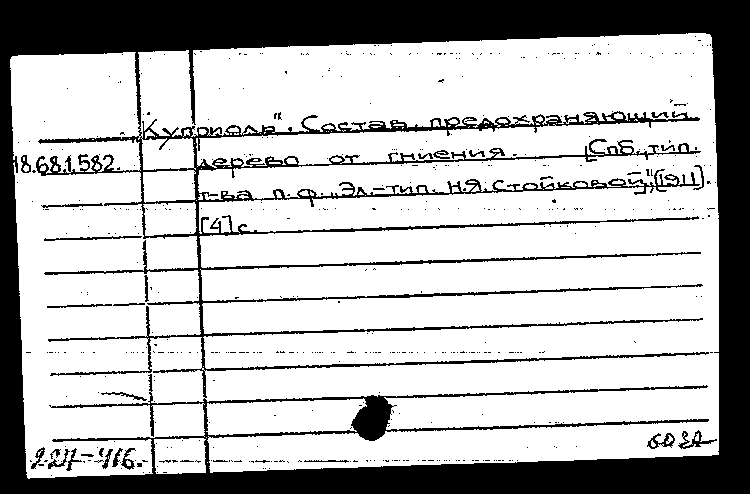 „Куприоль". Состав, предохраняющий
18.68.1.582. дерево от гниения. [Спб., тип.
т-ва п. ф. „Эл.-тип. Н.Я. Стойковой", [1911].
[4] с.
227-416.